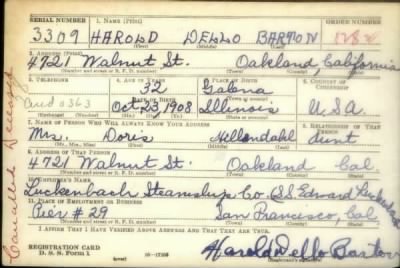 SERIAL NUMBER 1. NAME (Print) ORDER NUMBER
3309 HAROLD DELLO BARTON
(First) (Middle) (Last)
2. ADDRESS (Print)
4721 Walnut St. Oakland, California
(Number and street or R. F. D. number) (Town) (County) (State)
3. TELEPHONE 4. AGE IN YEARS 5. PLACE OF BIRTH 6. COUNTRY OF CITIZENSHIP
32 Galena
(Town or county)
DATE OF BIRTH
Oct 23, 1908 Illinois U.S.A.
(Exchange) (Number) (Mo.) (Day) (Yr.) (State or country)
7. NAME OF PERSON WHO WILL ALWAYS KNOW YOUR ADDRESS 8. RELATIONSHIP OF THAT PERSON
Mrs. Doris Aunt
(Mr., Mrs., Miss) (First) (Middle) (Last)
9. ADDRESS OF THAT PERSON
4721 Walnut St. Oakland Cal.
(Number and street or R. F. D. number) (Town) (County) (State)
10. EMPLOYER'S NAME
Luckenbach Steamship Co. (S.S. Edward Luckenbach
11. PLACE OF EMPLOYMENT OR BUSINESS
Pier # 29 San Francisco, Cal
(Number and street or R. F. D. number) (Town) (County) (State)
I AFFIRM THAT I HAVE VERIFIED ABOVE ANSWERS AND THAT THEY ARE TRUE.
REGISTRATION CARD
D. S. S. Form 1 Harold Dello Barton
Cancelled Deceased